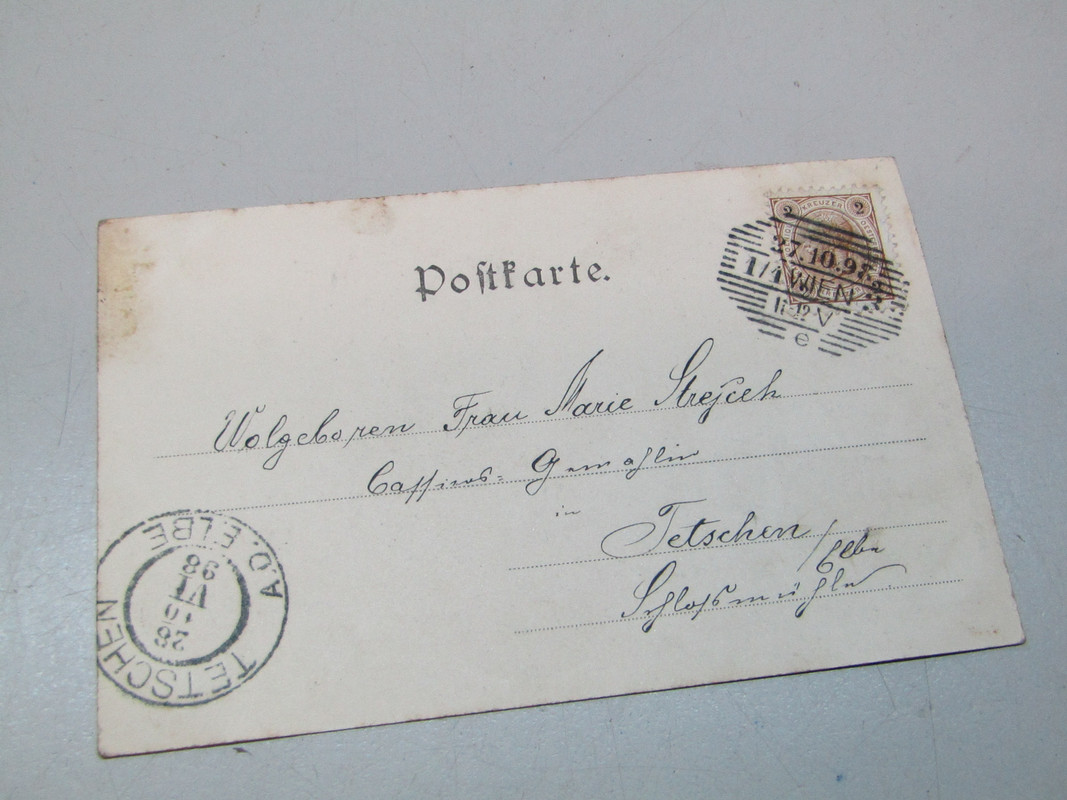 2 KREUZER 2
27.10.98
1/1 WIEN
11-12 V
e
Postkarte.
Wolgeboren Frau Marie Strejček
Cassiers= Gemahlin
in
Tetschen/
Elbe
Schloßmühle
TETSCHEN A.D. ELBE
28
10
VI
98